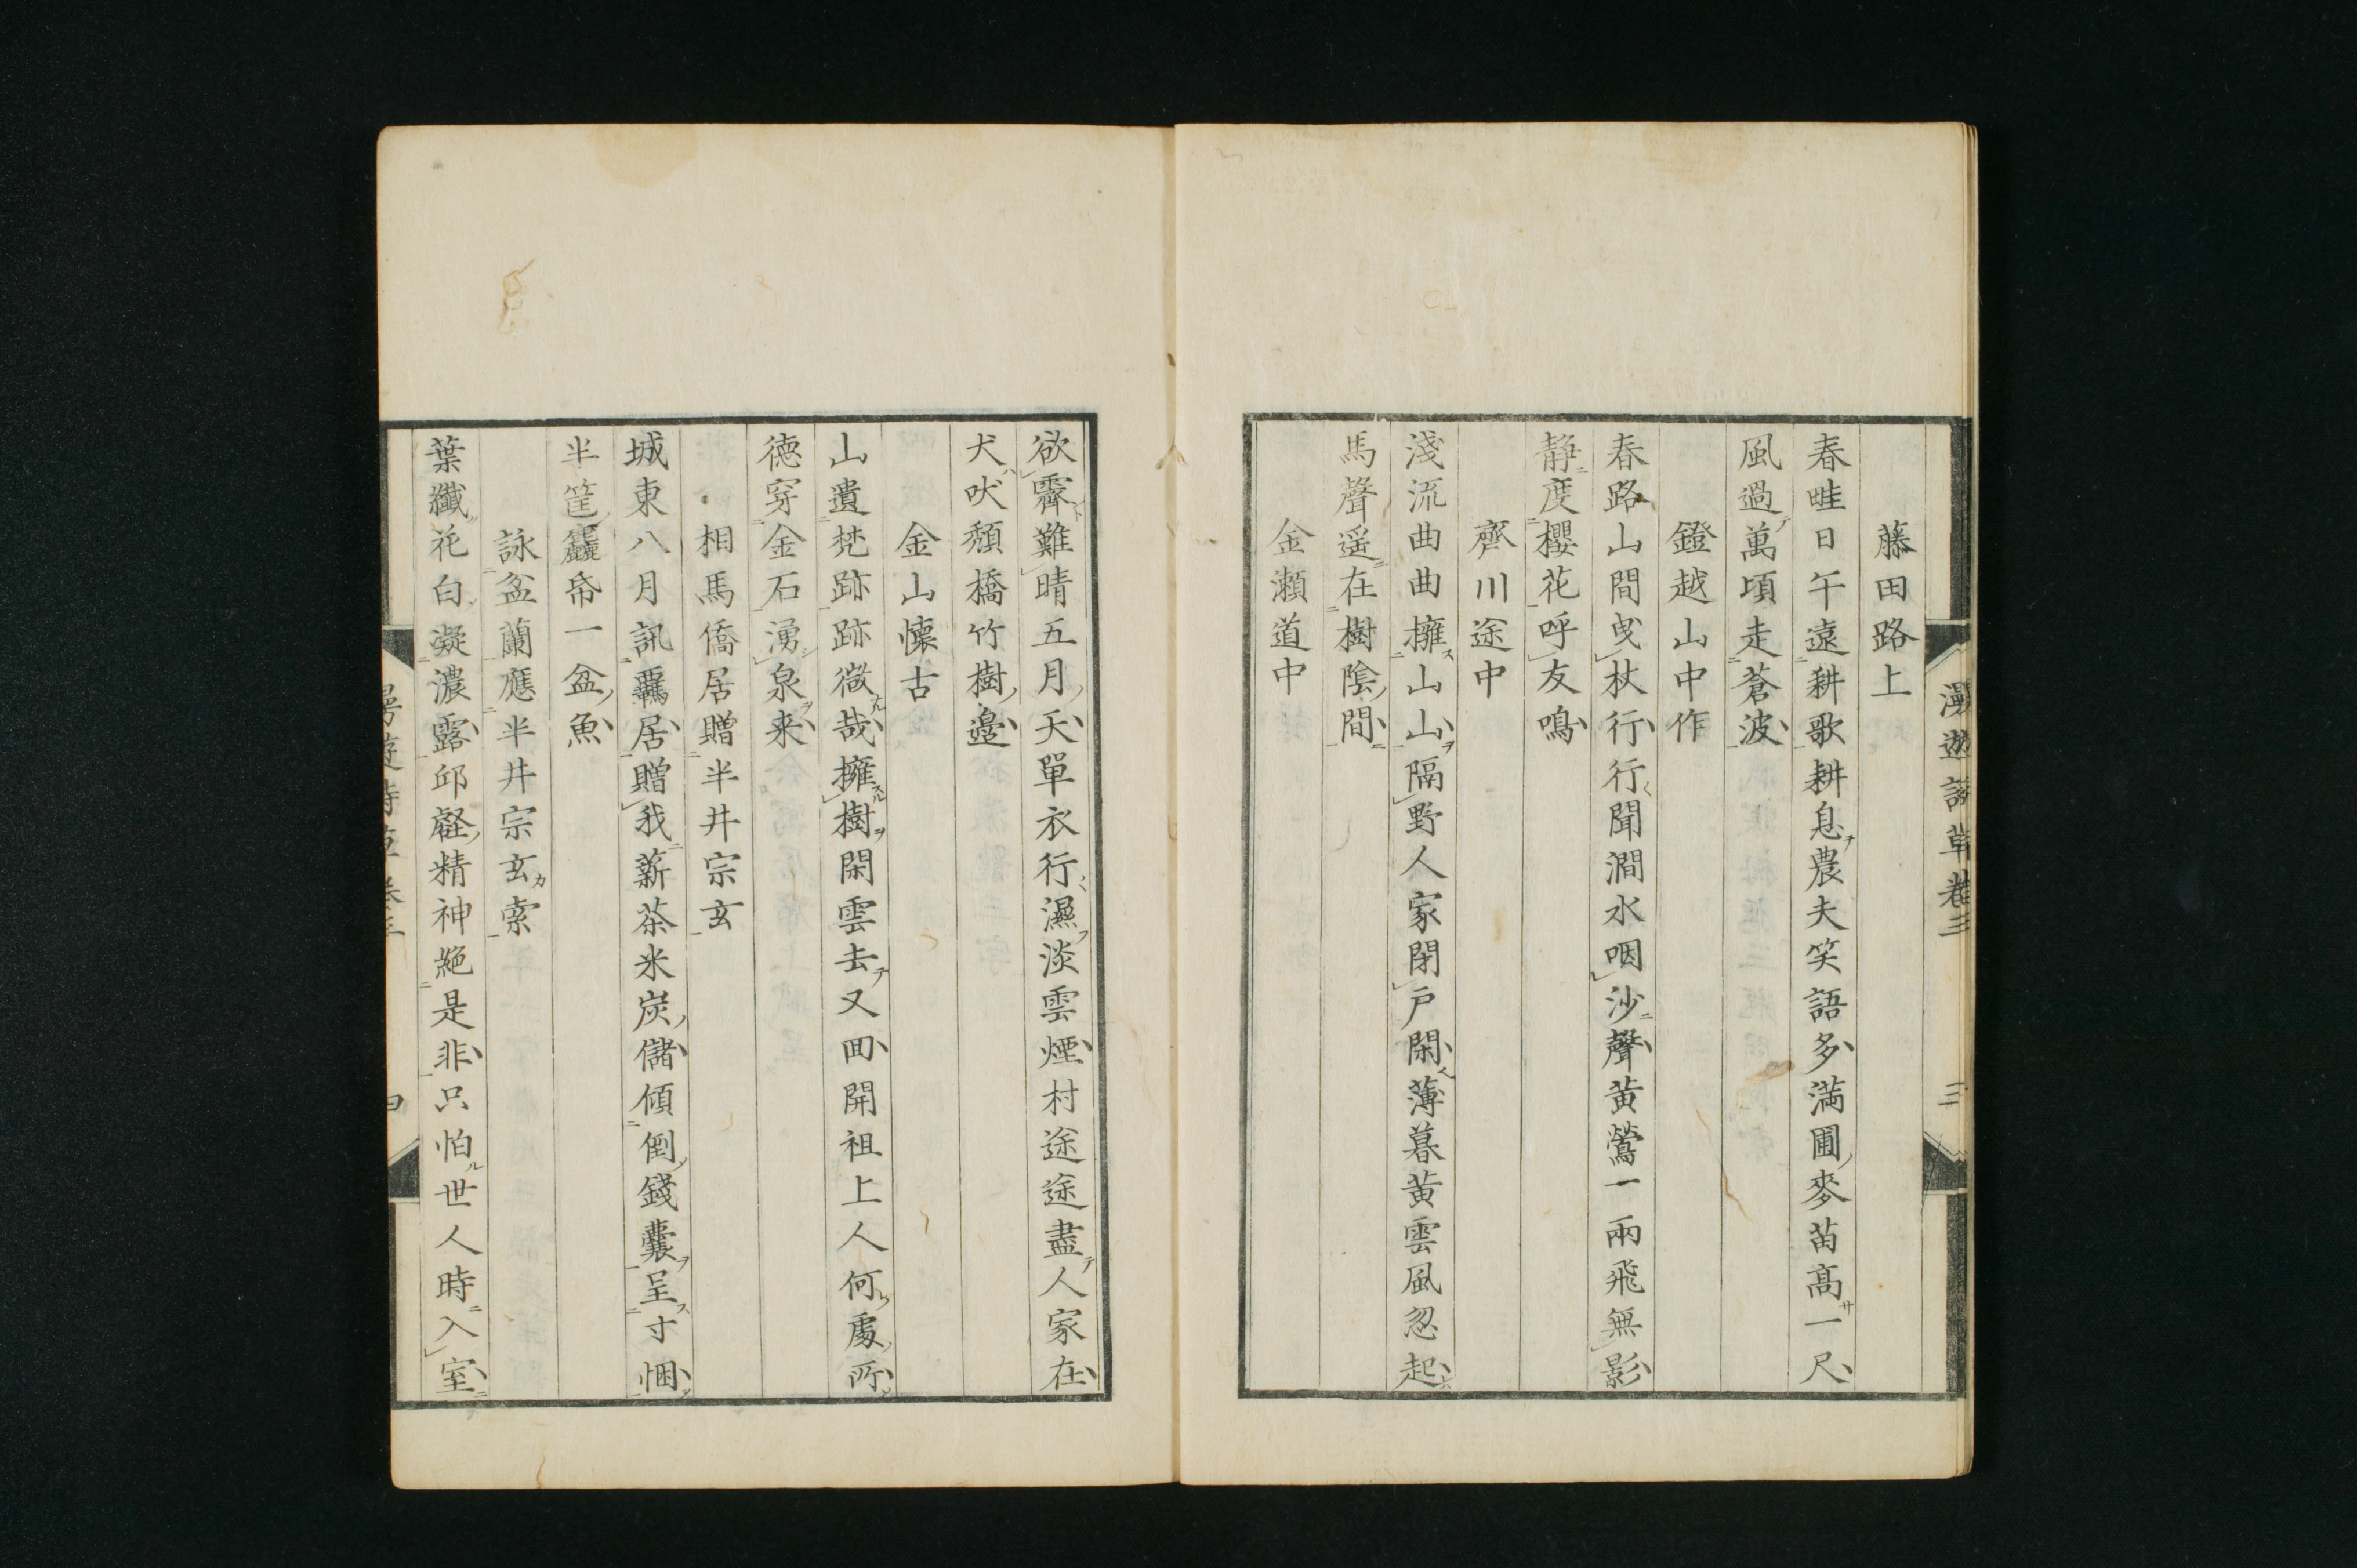 漫遊詩草卷三
三
藤田路上
春畦日午遠耕歌耕息農夫笑語多満圃麥苗高一尺
風過萬頃走蒼波
鐙越山中作
春路山間曳杖行行聞澗水咽沙聲黄鶯一兩飛無影
静度櫻花呼友鳴
齊川途中
淺流曲曲擁山山隔野人家閉戸閑薄暮黄雲風忽起
馬聲遥在樹陰間
金瀬道中
欲霽難晴五月天單衣行濕淡雲煙村途途盡人家在
犬吠頽橋竹樹邉
金山懐古
山遺梵跡跡微哉擁樹閑雲去又回開祖上人何處所
徳穿金石湧泉来
相馬僑居贈半井宗玄
城東八月訊羈居贈我薪茶米炭儲傾倒錢囊呈寸悃
半筐麤帋一盆魚
詠盆蘭應半井宗玄索
葉纖花白凝濃露邱壑精神絶是非只怕世人時入室
四